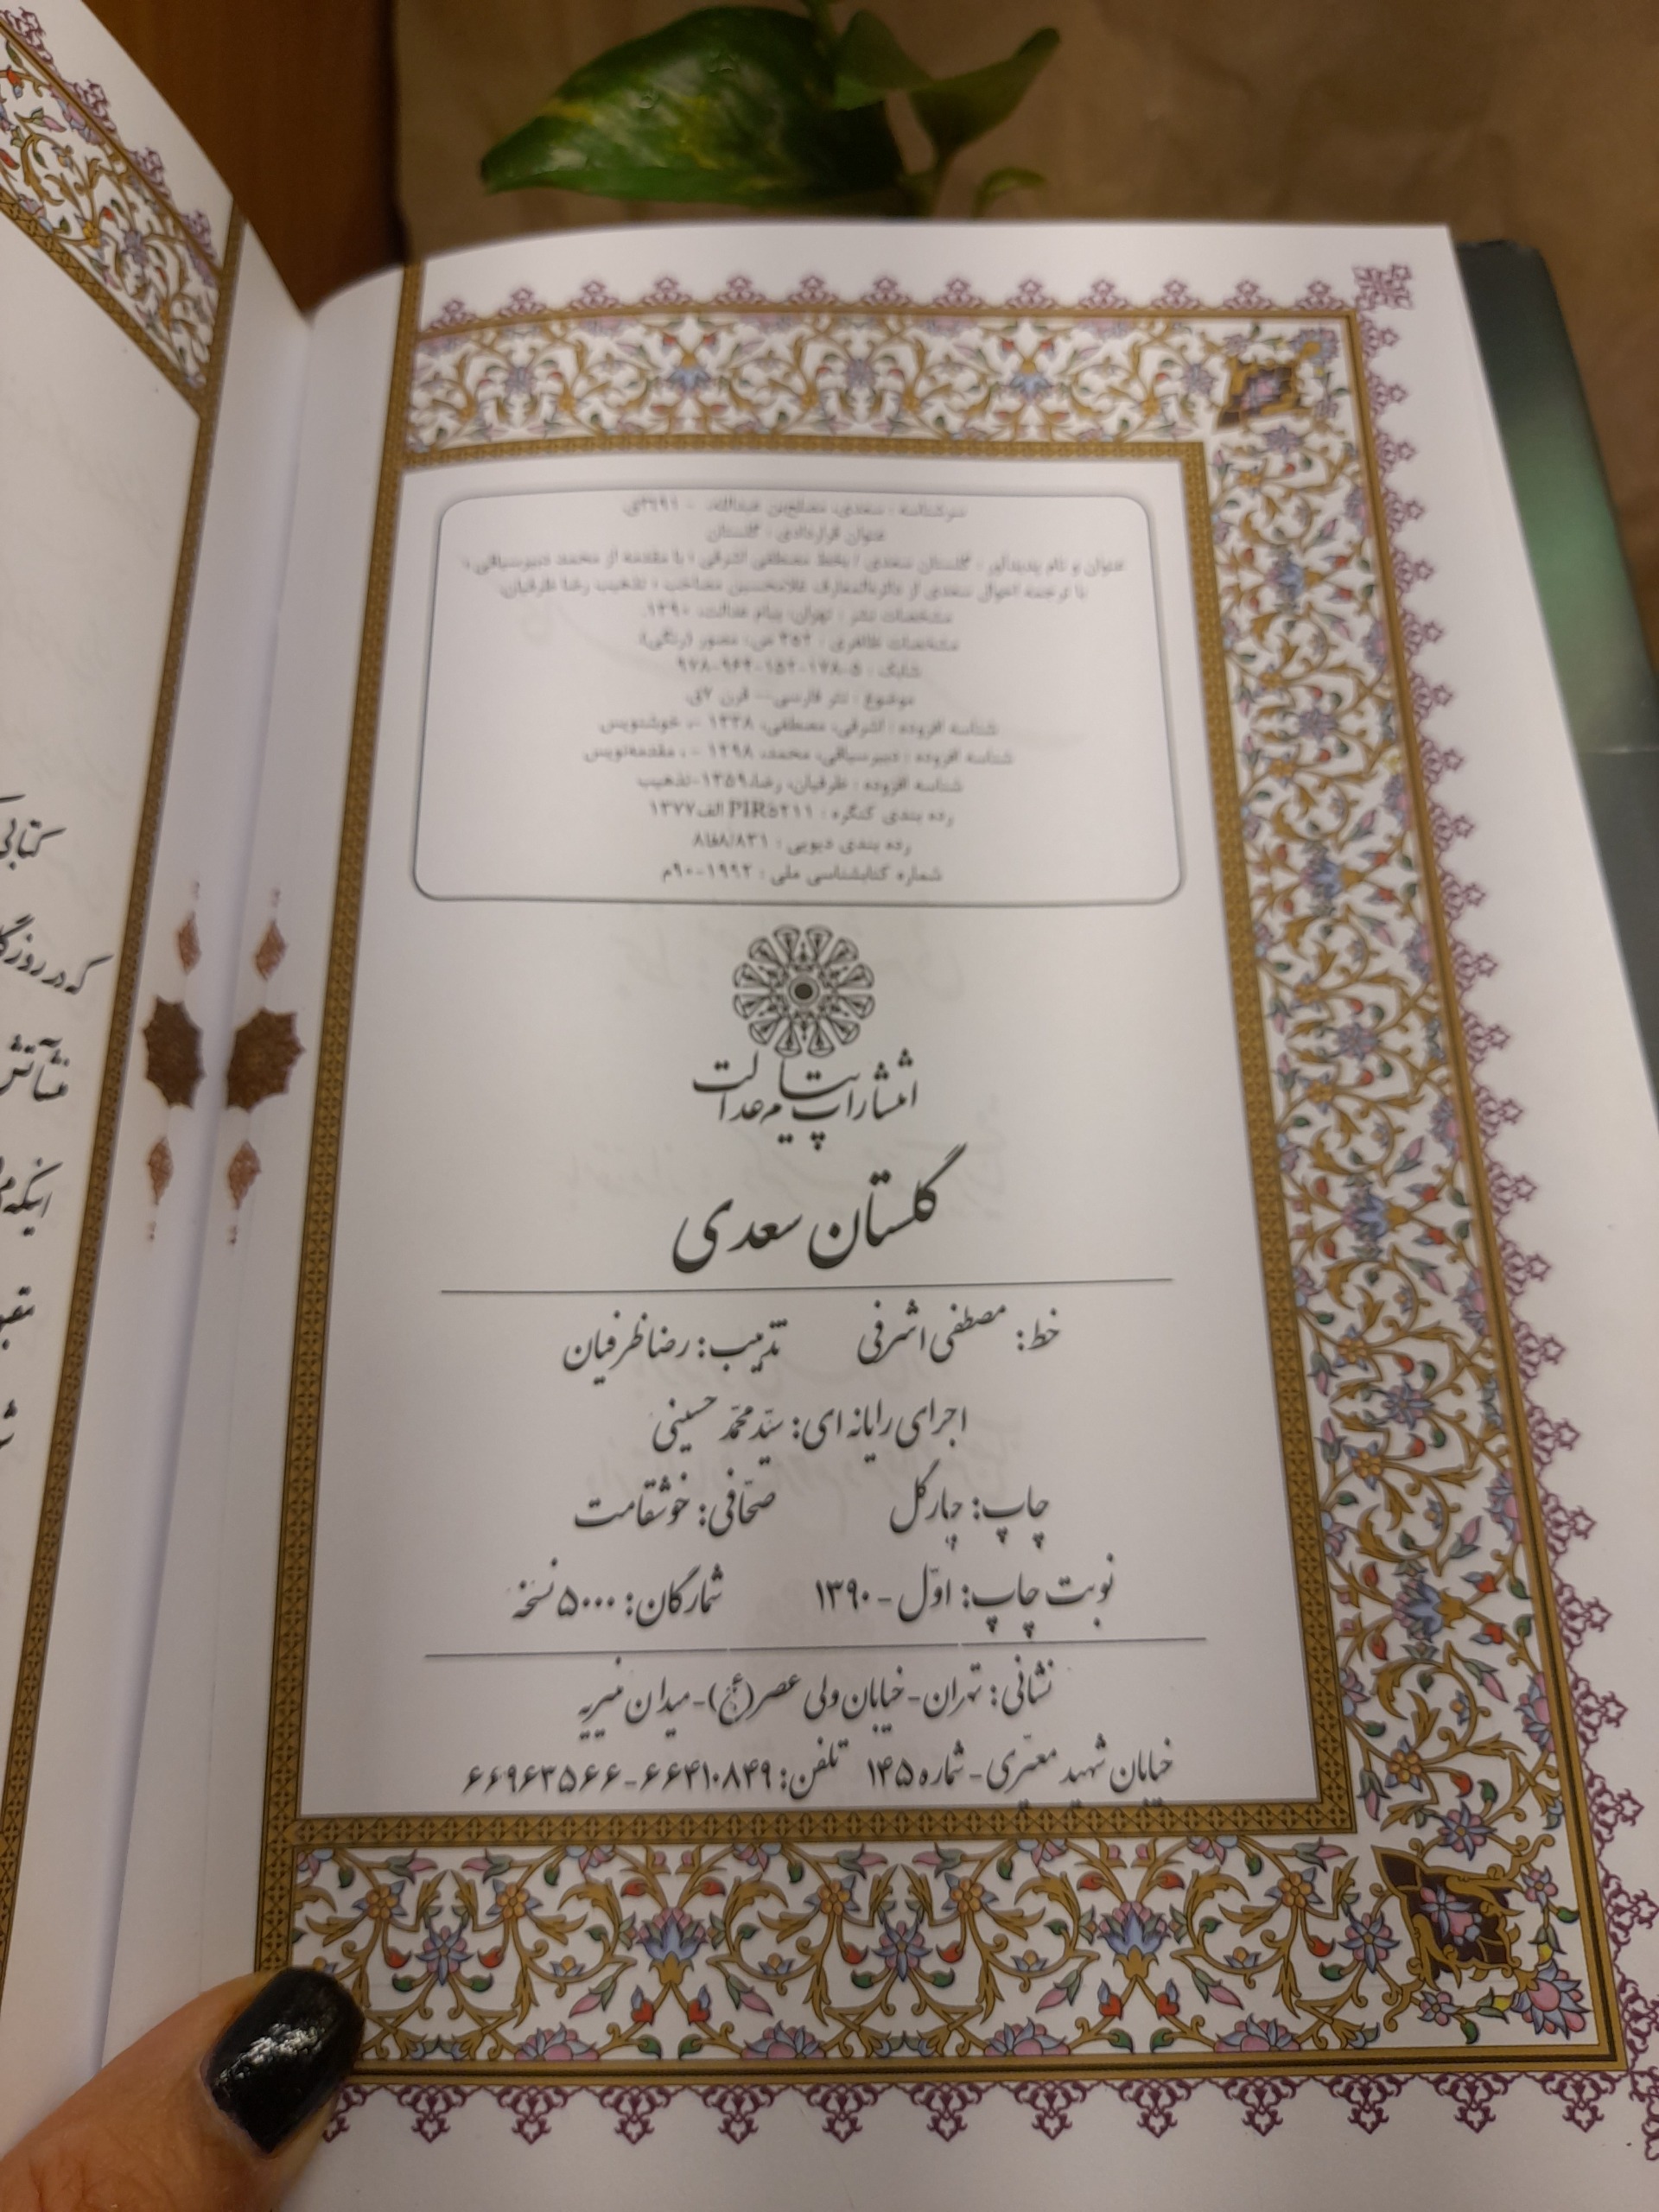 سرشناسه : سعدی، مصلح‌بن عبدالله، - ۶۹۱؟ق.
عنوان قراردادی : گلستان
عنوان و نام پدیدآور : گلستان سعدی / بخط مصطفی اشرفی ؛ با مقدمه از محمد دبیرسیاقی ؛
با ترجمه احوال سعدی از دائره‌المعارف غلامحسین مصاحب ؛ تذهیب رضا ظرفیان.
مشخصات نشر : تهران: پیام عدالت، ۱۳۹۰.
مشخصات ظاهری : ۳۵۲ ص، مصور (رنگی).
شابک : ۵-۱۷۸-۱۵۲-۹۶۴-۹۷۸
موضوع : نثر فارسی-- قرن ۷ق.
شناسه افزوده : اشرفی، مصطفی، ۱۳۳۸ -، خوشنویس
شناسه افزوده : دبیرسیاقی، محمد، ۱۲۹۸ - ، مقدمه‌نویس
شناسه افزوده : ظرفیان، رضا،۱۳۵۹-تذهیب
رده بندی کنگره : PIR۵۲۱۱ الف۱۳۷۷
رده بندی دیویی : ۸فا۸/۸۳۱
شماره کتابشناسی ملی : ۱۹۹۲-۹۰م
انتشارات پیام عدالت
گلستان سعدی
خط: مصطفی اشرفی تذهیب: رضا ظرفیان
اجرای رایانه ای: سیّد محمّد حسینی
چاپ: چهارگل صحّافی: خوشقامت
نوبت چاپ: اوّل - ۱۳۹۰ شمارگان: ۵۰۰۰ نسخه
نشانی: تهران - خیابان ولی عصر (عج) - میدان منیریه
خیابان شهید معیّری - شماره ۱۴۵ تلفن: ۶۶۴۱۰۸۴۹ - ۶۶۹۶۳۵۶۶
که در روزگا